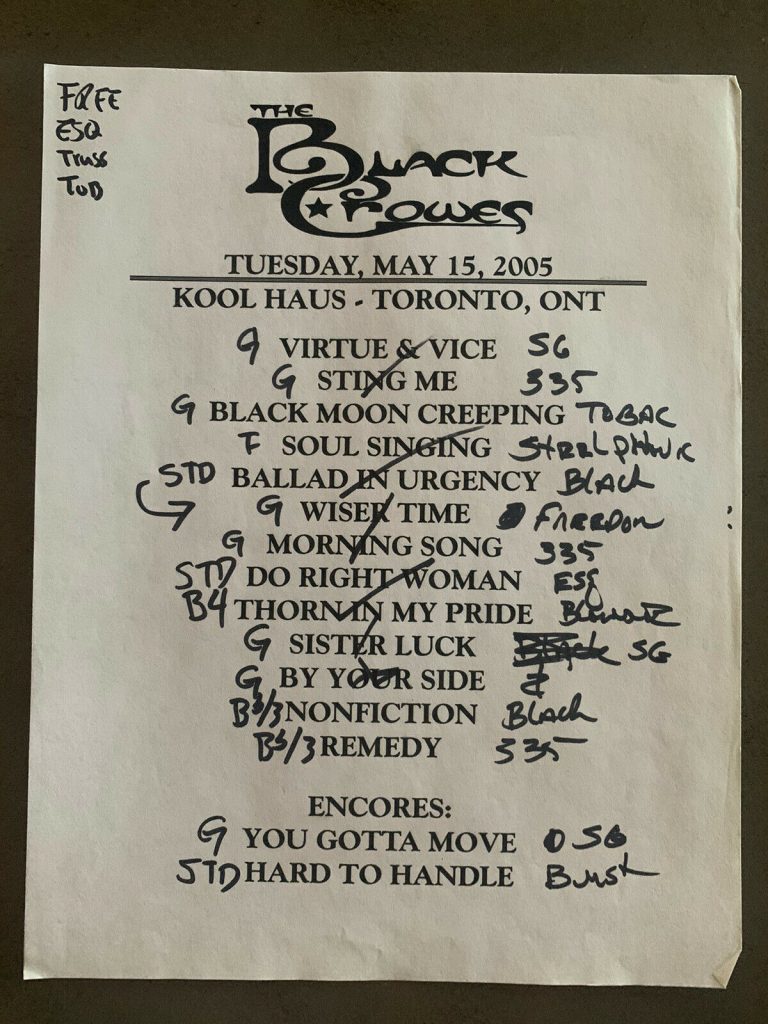 FREE
ESQ
Truss
TOD
THE
BLACK
CROWES
TUESDAY, MAY 15, 2005
KOOL HAUS - TORONTO, ONT
G VIRTUE & VICE SG
G STING ME 335
G BLACK MOON CREEPING TOBAC
F SOUL SINGING
STD BALLAD IN URGENCY Black
G WISER TIME FREEDOM
G MORNING SONG 335
STD DO RIGHT WOMAN ESQ
B4 THORN IN MY PRIDE
G SISTER LUCK Black SG
G BY YOUR SIDE
NONFICTION Black
REMEDY 335
ENCORES:
G YOU GOTTA MOVE SG
STD HARD TO HANDLE